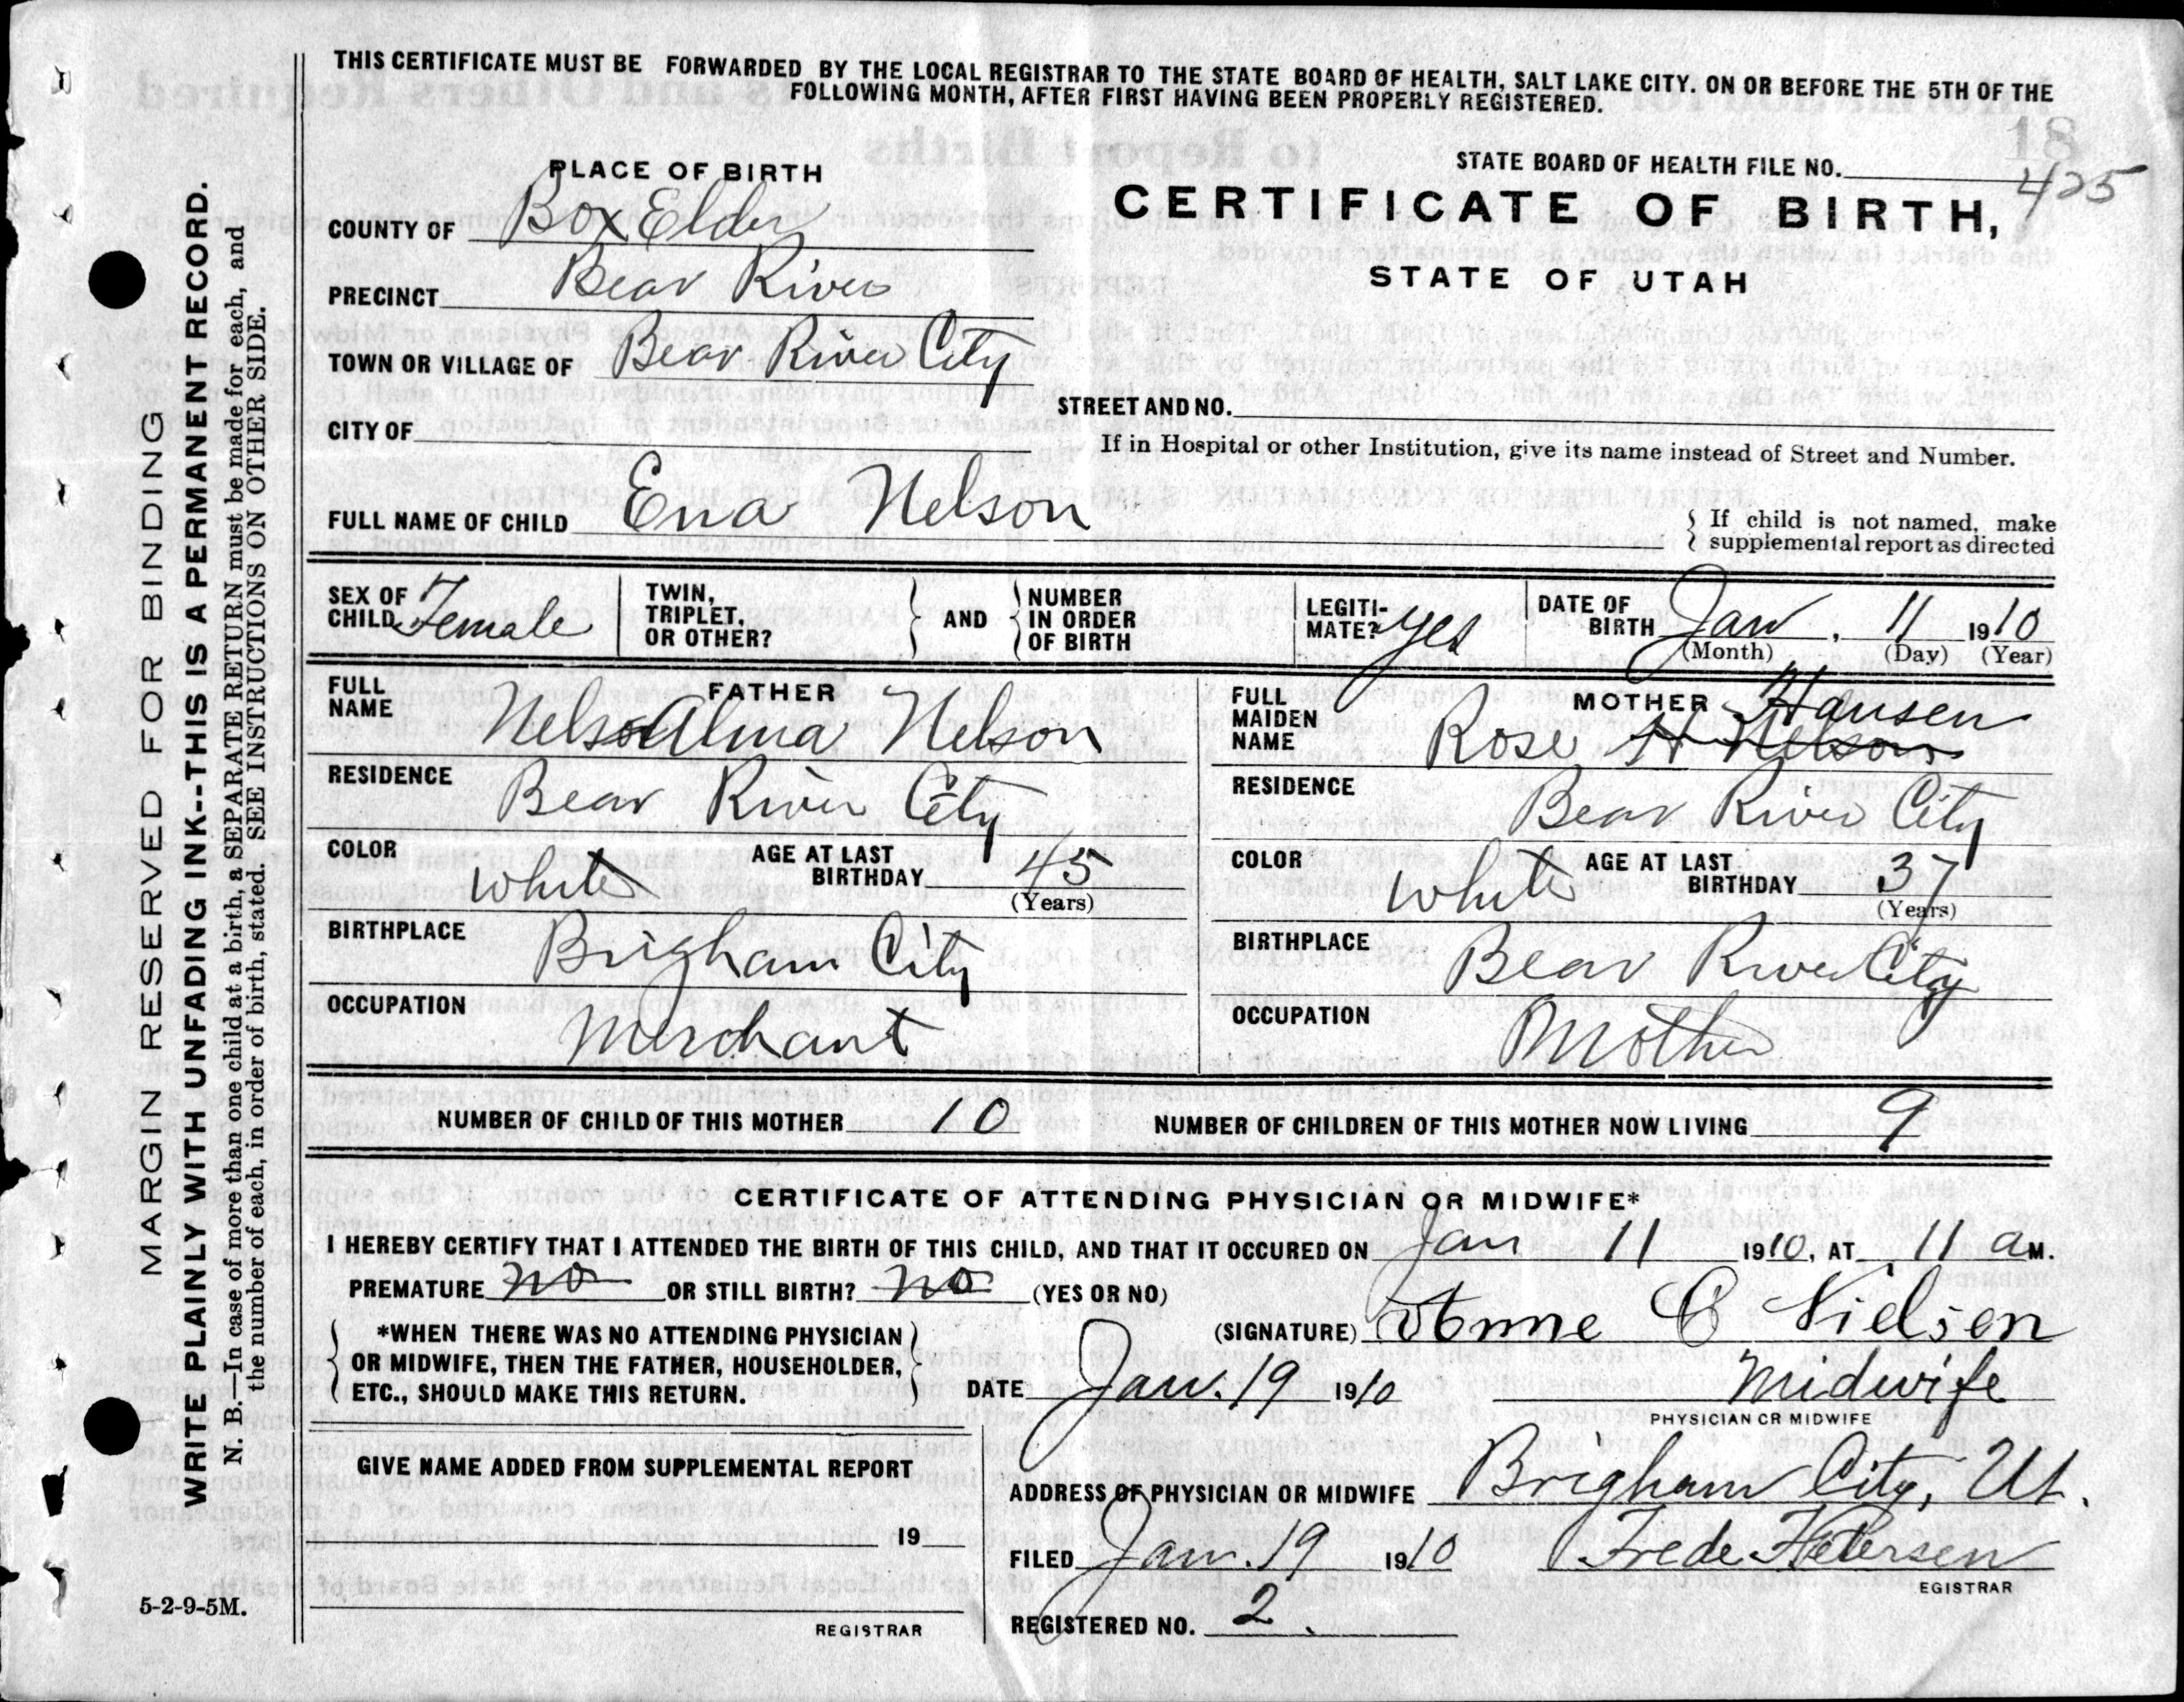 THIS CERTIFICATE MUST BE FORWARDED BY THE LOCAL REGISTRAR TO THE STATE BOARD OF HEALTH, SALT LAKE CITY. ON OR BEFORE THE 5TH OF THE
FOLLOWING MONTH, AFTER FIRST HAVING BEEN PROPERLY REGISTERED.
18
PLACE OF BIRTH
STATE BOARD OF HEALTH FILE NO. 425
COUNTY OF Box Elder
CERTIFICATE OF BIRTH,
STATE OF UTAH
PRECINCT Bear River
TOWN OR VILLAGE OF Bear River City
STREET AND NO.
CITY OF
If in Hospital or other Institution, give its name instead of Street and Number.
FULL NAME OF CHILD Ena Nelson
If child is not named, make
supplemental report as directed
SEX OF CHILD Female
TWIN, TRIPLET, OR OTHER?
AND
NUMBER IN ORDER OF BIRTH
LEGITI-MATE? yes
DATE OF BIRTH Jan. 11 1910
(Month) (Day) (Year)
FATHER
FULL NAME Nels Alma Nelson
MOTHER
FULL MAIDEN NAME Rose H Nelson Hansen
RESIDENCE Bear River City
RESIDENCE Bear River City
COLOR White
AGE AT LAST BIRTHDAY 45
(Years)
COLOR White
AGE AT LAST BIRTHDAY 37
(Years)
BIRTHPLACE Brigham City
BIRTHPLACE Bear River City
OCCUPATION Merchant
OCCUPATION Mother
NUMBER OF CHILD OF THIS MOTHER 10
NUMBER OF CHILDREN OF THIS MOTHER NOW LIVING 9
CERTIFICATE OF ATTENDING PHYSICIAN OR MIDWIFE*
I HEREBY CERTIFY THAT I ATTENDED THE BIRTH OF THIS CHILD, AND THAT IT OCCURED ON Jan 11 1910, AT 11 a M.
PREMATURE no OR STILL BIRTH? no (YES OR NO)
*WHEN THERE WAS NO ATTENDING PHYSICIAN
OR MIDWIFE, THEN THE FATHER, HOUSEHOLDER,
ETC., SHOULD MAKE THIS RETURN.
(SIGNATURE) Anne C Nielsen
DATE Jan. 19 1910
Midwife
PHYSICIAN OR MIDWIFE
GIVE NAME ADDED FROM SUPPLEMENTAL REPORT
19
REGISTRAR
ADDRESS OF PHYSICIAN OR MIDWIFE Brigham City, Ut.
FILED Jan. 19 1910 Frede Petersen
EGISTRAR
REGISTERED NO. 2
5-2-9-5M.
MARGIN RESERVED FOR BINDING
WRITE PLAINLY WITH UNFADING INK--THIS IS A PERMANENT RECORD.
N. B.—In case of more than one child at a birth, a SEPARATE RETURN must be made for each, and
the number of each, in order of birth, stated. SEE INSTRUCTIONS ON OTHER SIDE.